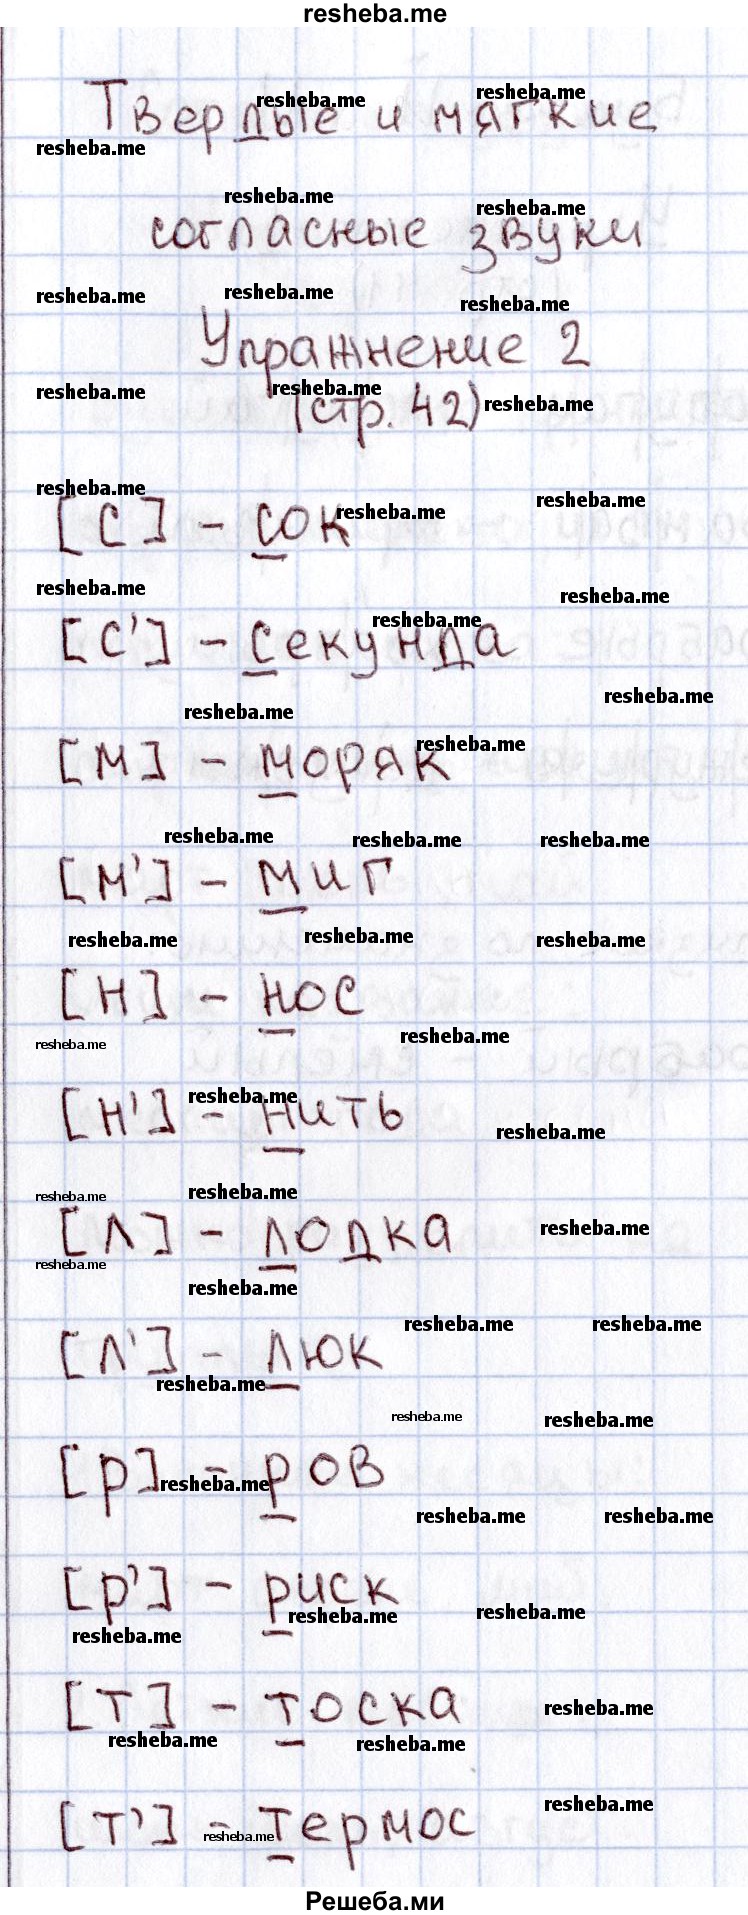 resheba.me
Твердые и мягкие
согласные звуки
Упражнение 2
(стр. 42)
[с] - сок
[с'] - секунда
[м] - моряк
[м'] - миг
[н] - нос
[н'] - нить
[л] - лодка
[л'] - люк
[р] - ров
[р'] - риск
[т] - тоска
[т'] - термос
Решеба.ми